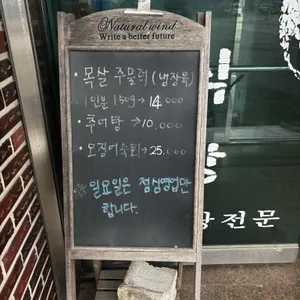 Natural wind
Write a better future
· 목살 주물럭 (냉장육)
1인분 150g → 14.000
· 추어탕 → 10.000
· 오징어숙회 → 25.000
일요일은 점심영업만
합니다.
전문